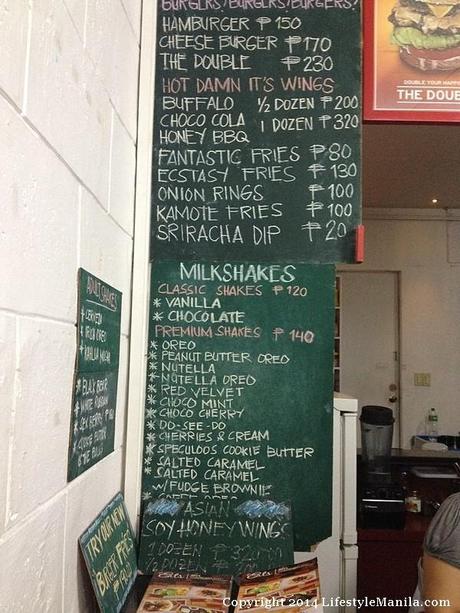 BURGERS! BURGERS! BURGERS!
HAMBURGER ₱150
CHEESE BURGER ₱170
THE DOUBLE ₱230
HOT DAMN IT'S WINGS
BUFFALO ½ DOZEN ₱200
CHOCO COLA 1 DOZEN ₱320
HONEY BBQ
FANTASTIC FRIES ₱80
ECSTASY FRIES ₱130
ONION RINGS ₱100
KAMOTE FRIES ₱100
SRIRACHA DIP ₱20
DOUBLE YOUR
THE DOUB
MILKSHAKES
CLASSIC SHAKES ₱120
* VANILLA
* CHOCOLATE
PREMIUM SHAKES ₱140
* OREO
* PEANUT BUTTER OREO
* NUTELLA
* NUTELLA OREO
* RED VELVET
* CHOCO MINT
* CHOCO CHERRY
* DO-SEE-DO
* CHERRIES & CREAM
* SPECULOOS COOKIE BUTTER
* SALTED CARAMEL
* SALTED CARAMEL
W/ FUDGE BROWNIE
ADULT SHAKES
* VANILLA
* WHITE RUSSIAN
ASIAN
SOY HONEY WINGS
1 DOZEN ₱320
½ DOZEN
TRY OUR NEW
Copyright 2014 LifestyleManila.com